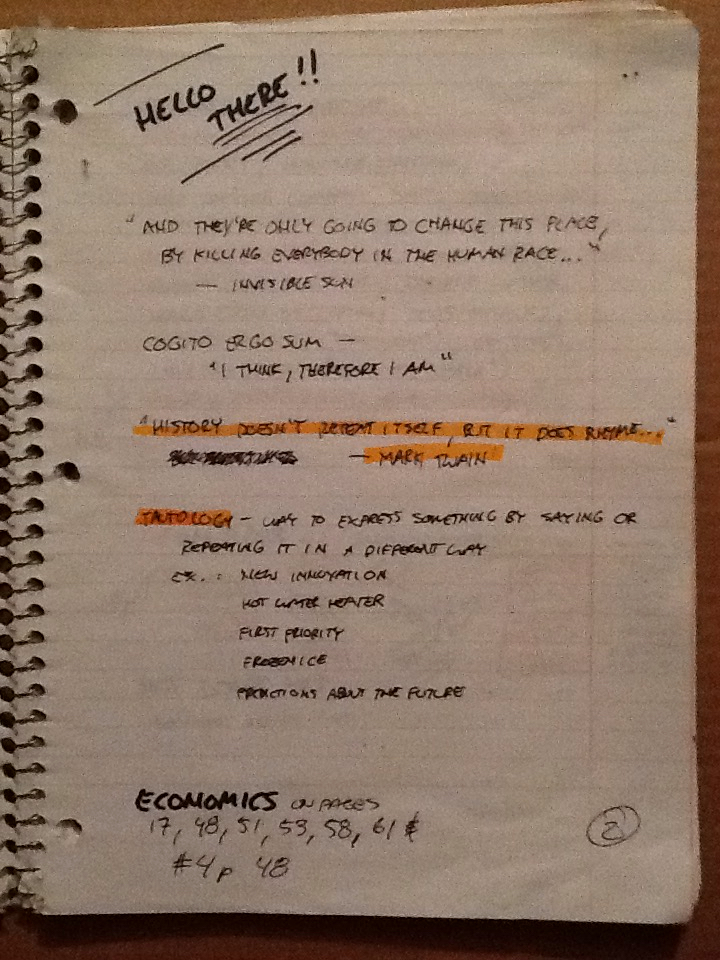 HELLO
THERE!!
"AND THEY'RE ONLY GOING TO CHANGE THIS PLACE,
BY KILLING EVERYBODY IN THE HUMAN RACE..."
— INVISIBLE SUN
COGITO ERGO SUM —
"I THINK, THEREFORE I AM"
"HISTORY DOESN'T REPEAT ITSELF, BUT IT DOES RHYME..."
— MARK TWAIN
TAUTOLOGY — WAY TO EXPRESS SOMETHING BY SAYING OR
REPEATING IT IN A DIFFERENT WAY
EX. : NEW INNOVATION
HOT WATER HEATER
FIRST PRIORITY
FROZEN ICE
PREDICTIONS ABOUT THE FUTURE
ECONOMICS ON PAGES
17, 48, 51, 53, 58, 61 &
#4 p 48
2